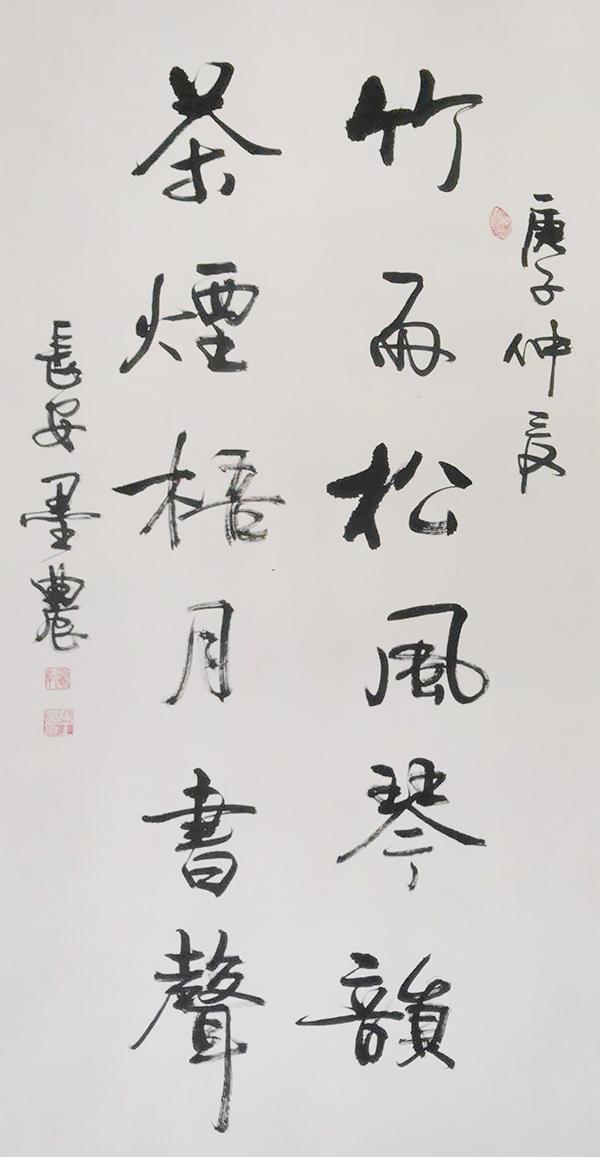 庚子仲夏
竹雨松風琴韻
茶煙梧月書聲
長安墨農